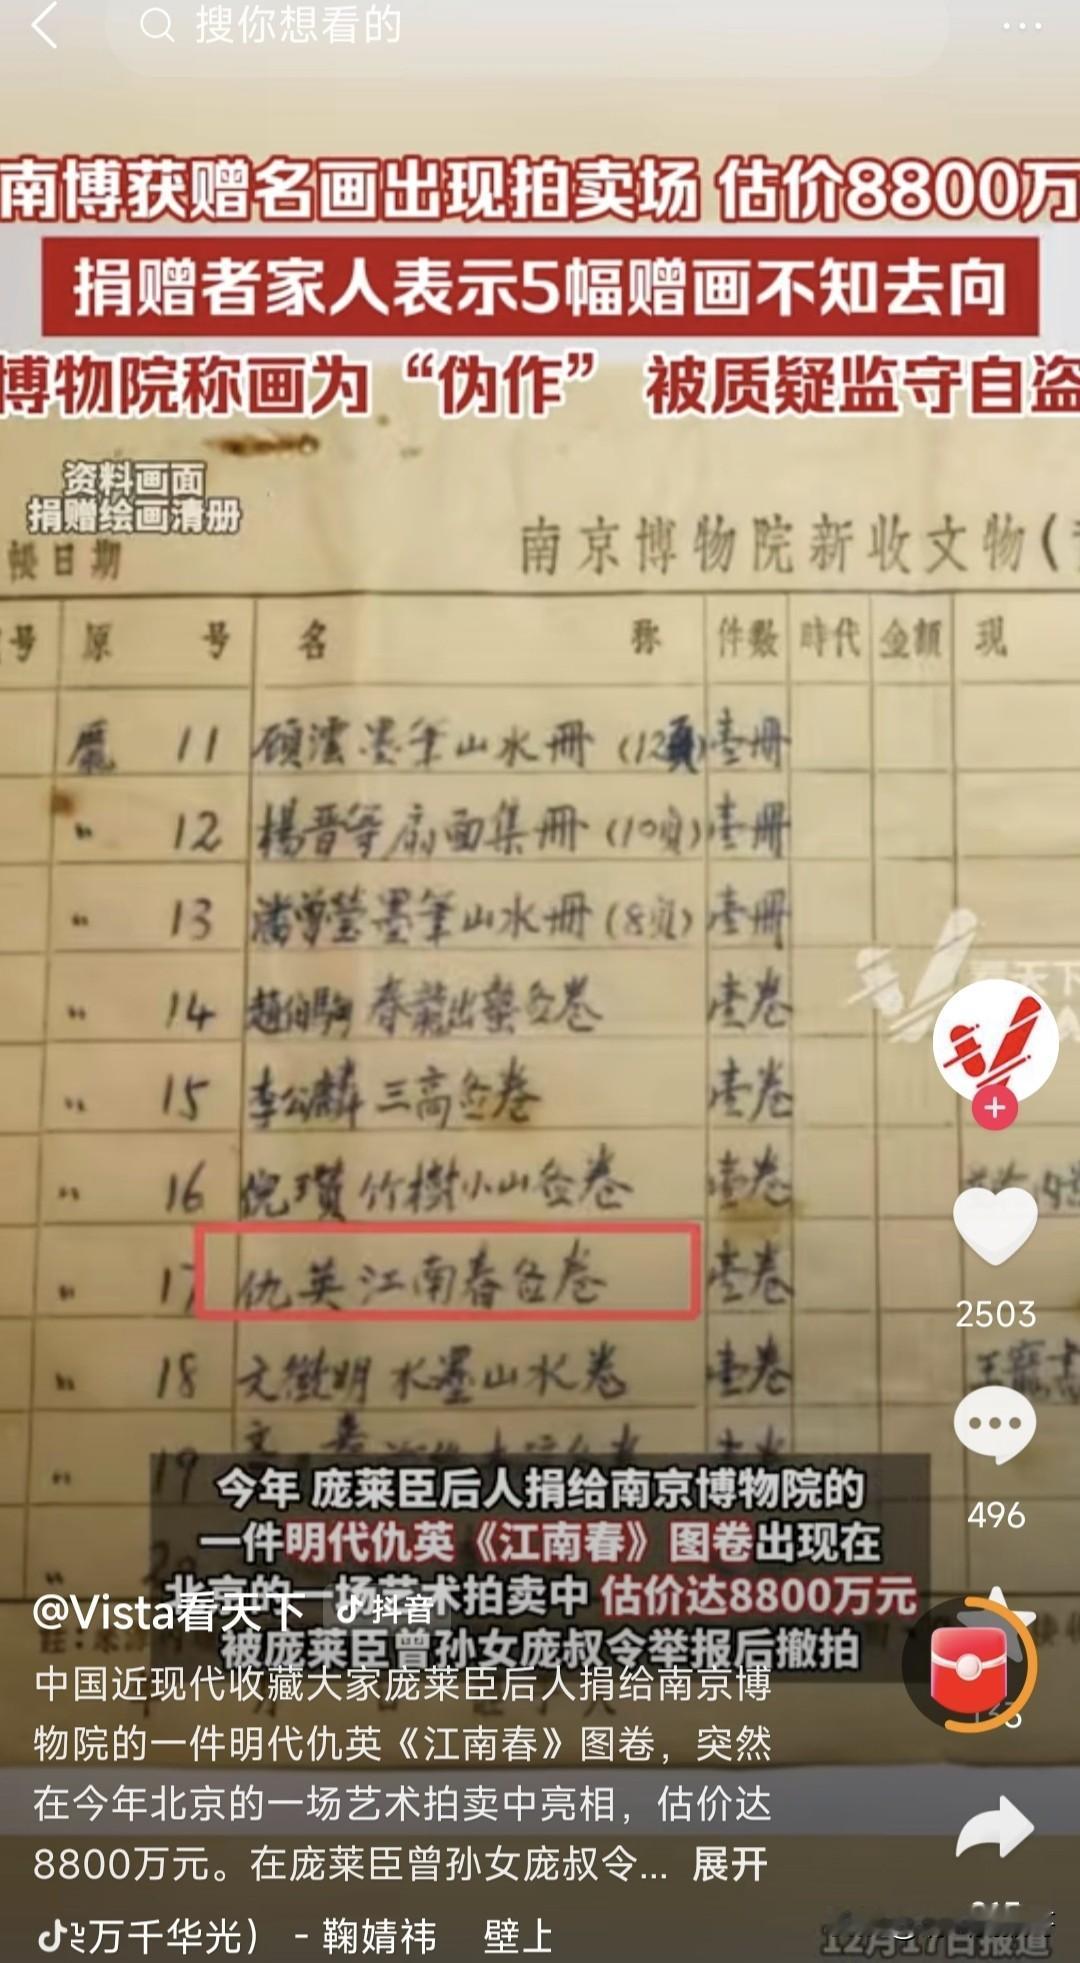 搜你想看的
南博获赠名画出现拍卖场 估价8800万
捐赠者家人表示5幅赠画不知去向
博物院称画为“伪作” 被质疑监守自盗
资料画面
捐赠绘画清册
日期
南京博物院新收文物(
号 原 号 名 称 件数 時代 金額 现
11 墨笔山水冊 (12頁) 壹册
〃 12 楊晋等扇面集冊 (10页) 壹册
〃 13 潘曾莹墨筆山水冊 (8页) 壹册
〃 14 趙伯駒 春 出 图卷 壹卷
〃 15 李公麟 三高图卷 壹卷
〃 16 倪瓒 竹樹小山图卷 壹卷
〃 17 仇英 江南春图卷 壹卷
〃 18 文徵明 水墨山水卷 壹卷
〃 19
看天下
今年 庞莱臣后人捐给南京博物院的
一件明代仇英《江南春》图卷出现在
北京的一场艺术拍卖中 估价达8800万元
被庞莱臣曾孙女庞叔令举报后撤拍
@Vista看天下 抖音
中国近现代收藏大家庞莱臣后人捐给南京博
物院的一件明代仇英《江南春》图卷，突然
在今年北京的一场艺术拍卖中亮相，估价达
8800万元。在庞莱臣曾孙女庞叔令... 展开
万千华光） - 鞠婧祎 壁上
2503
496
12月17日报道